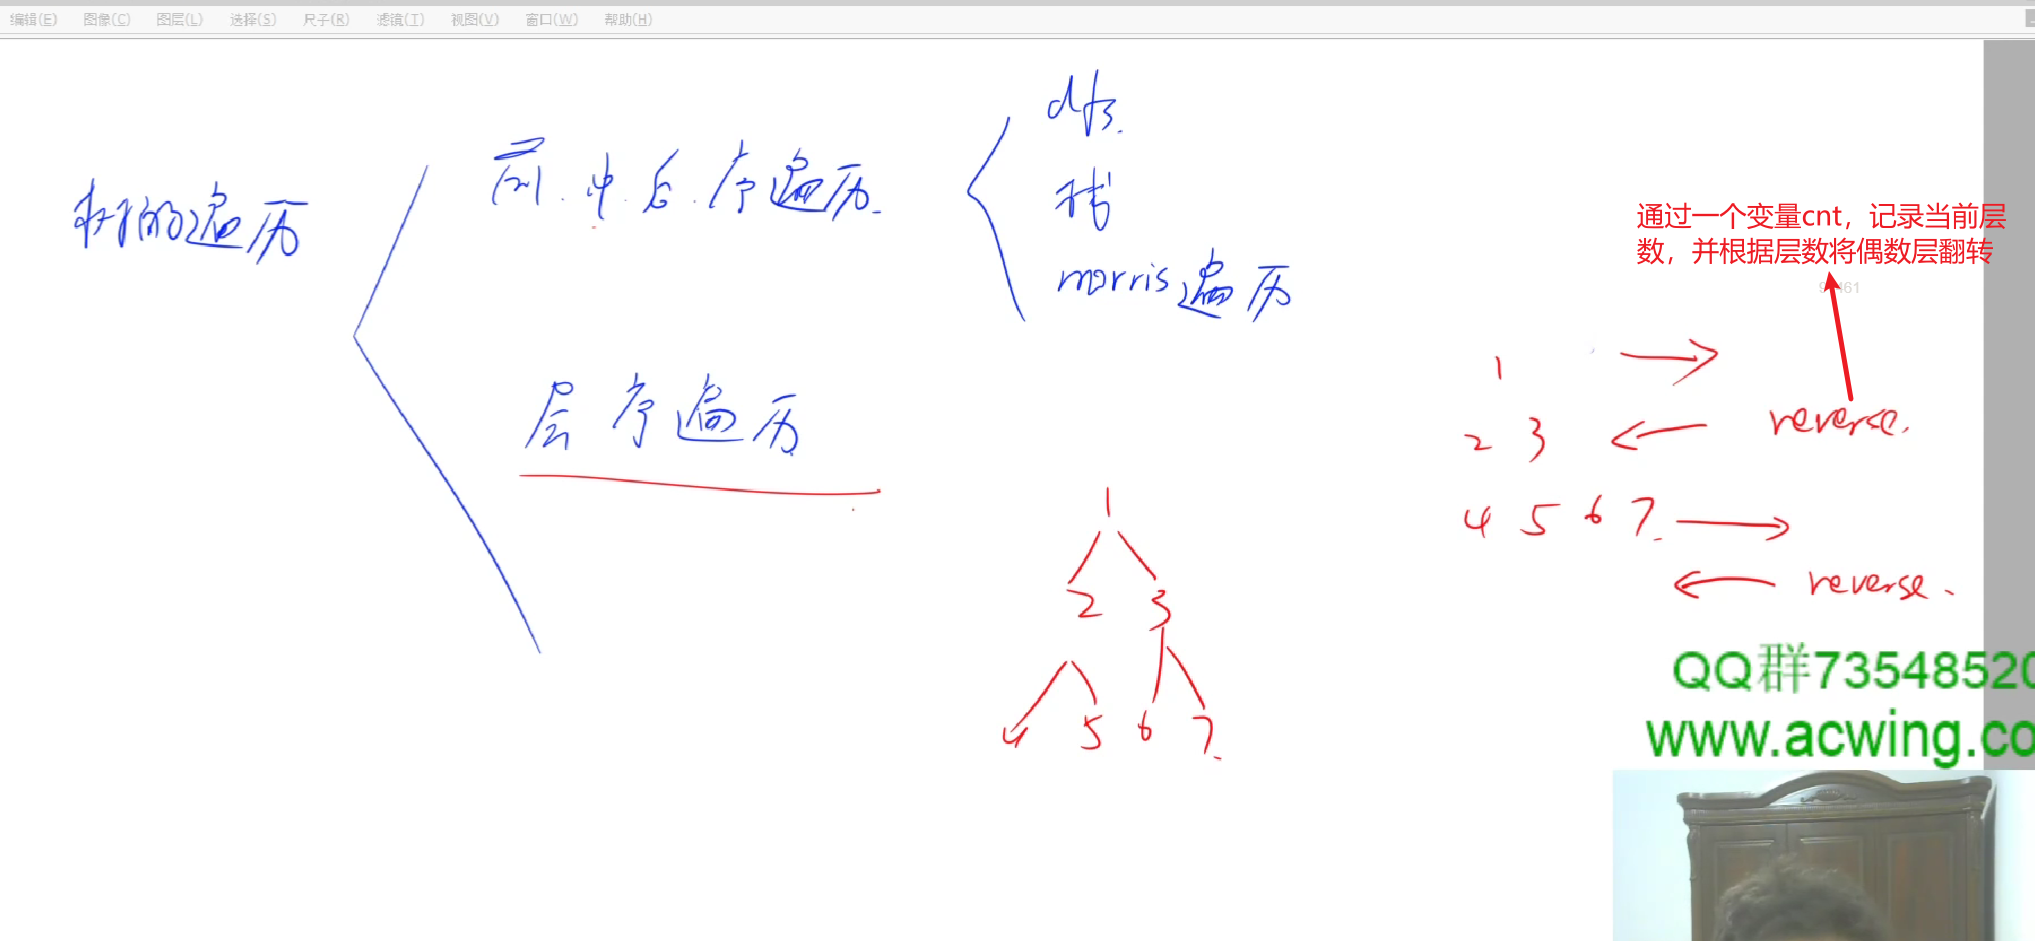 编辑(E) 图像(C) 图层(L) 选择(S) 尺子(R) 滤镜(T) 视图(V) 窗口(W) 帮助(H)
树的遍历
前.中.后.序遍历.
dfs.
栈
morris遍历
层序遍历
通过一个变量cnt，记录当前层
数，并根据层数将偶数层翻转
1
2 3
reverse.
4 5 6 7.
reverse.
1
2 3
4 5 6 7.
QQ群73548520
www.acwing.co